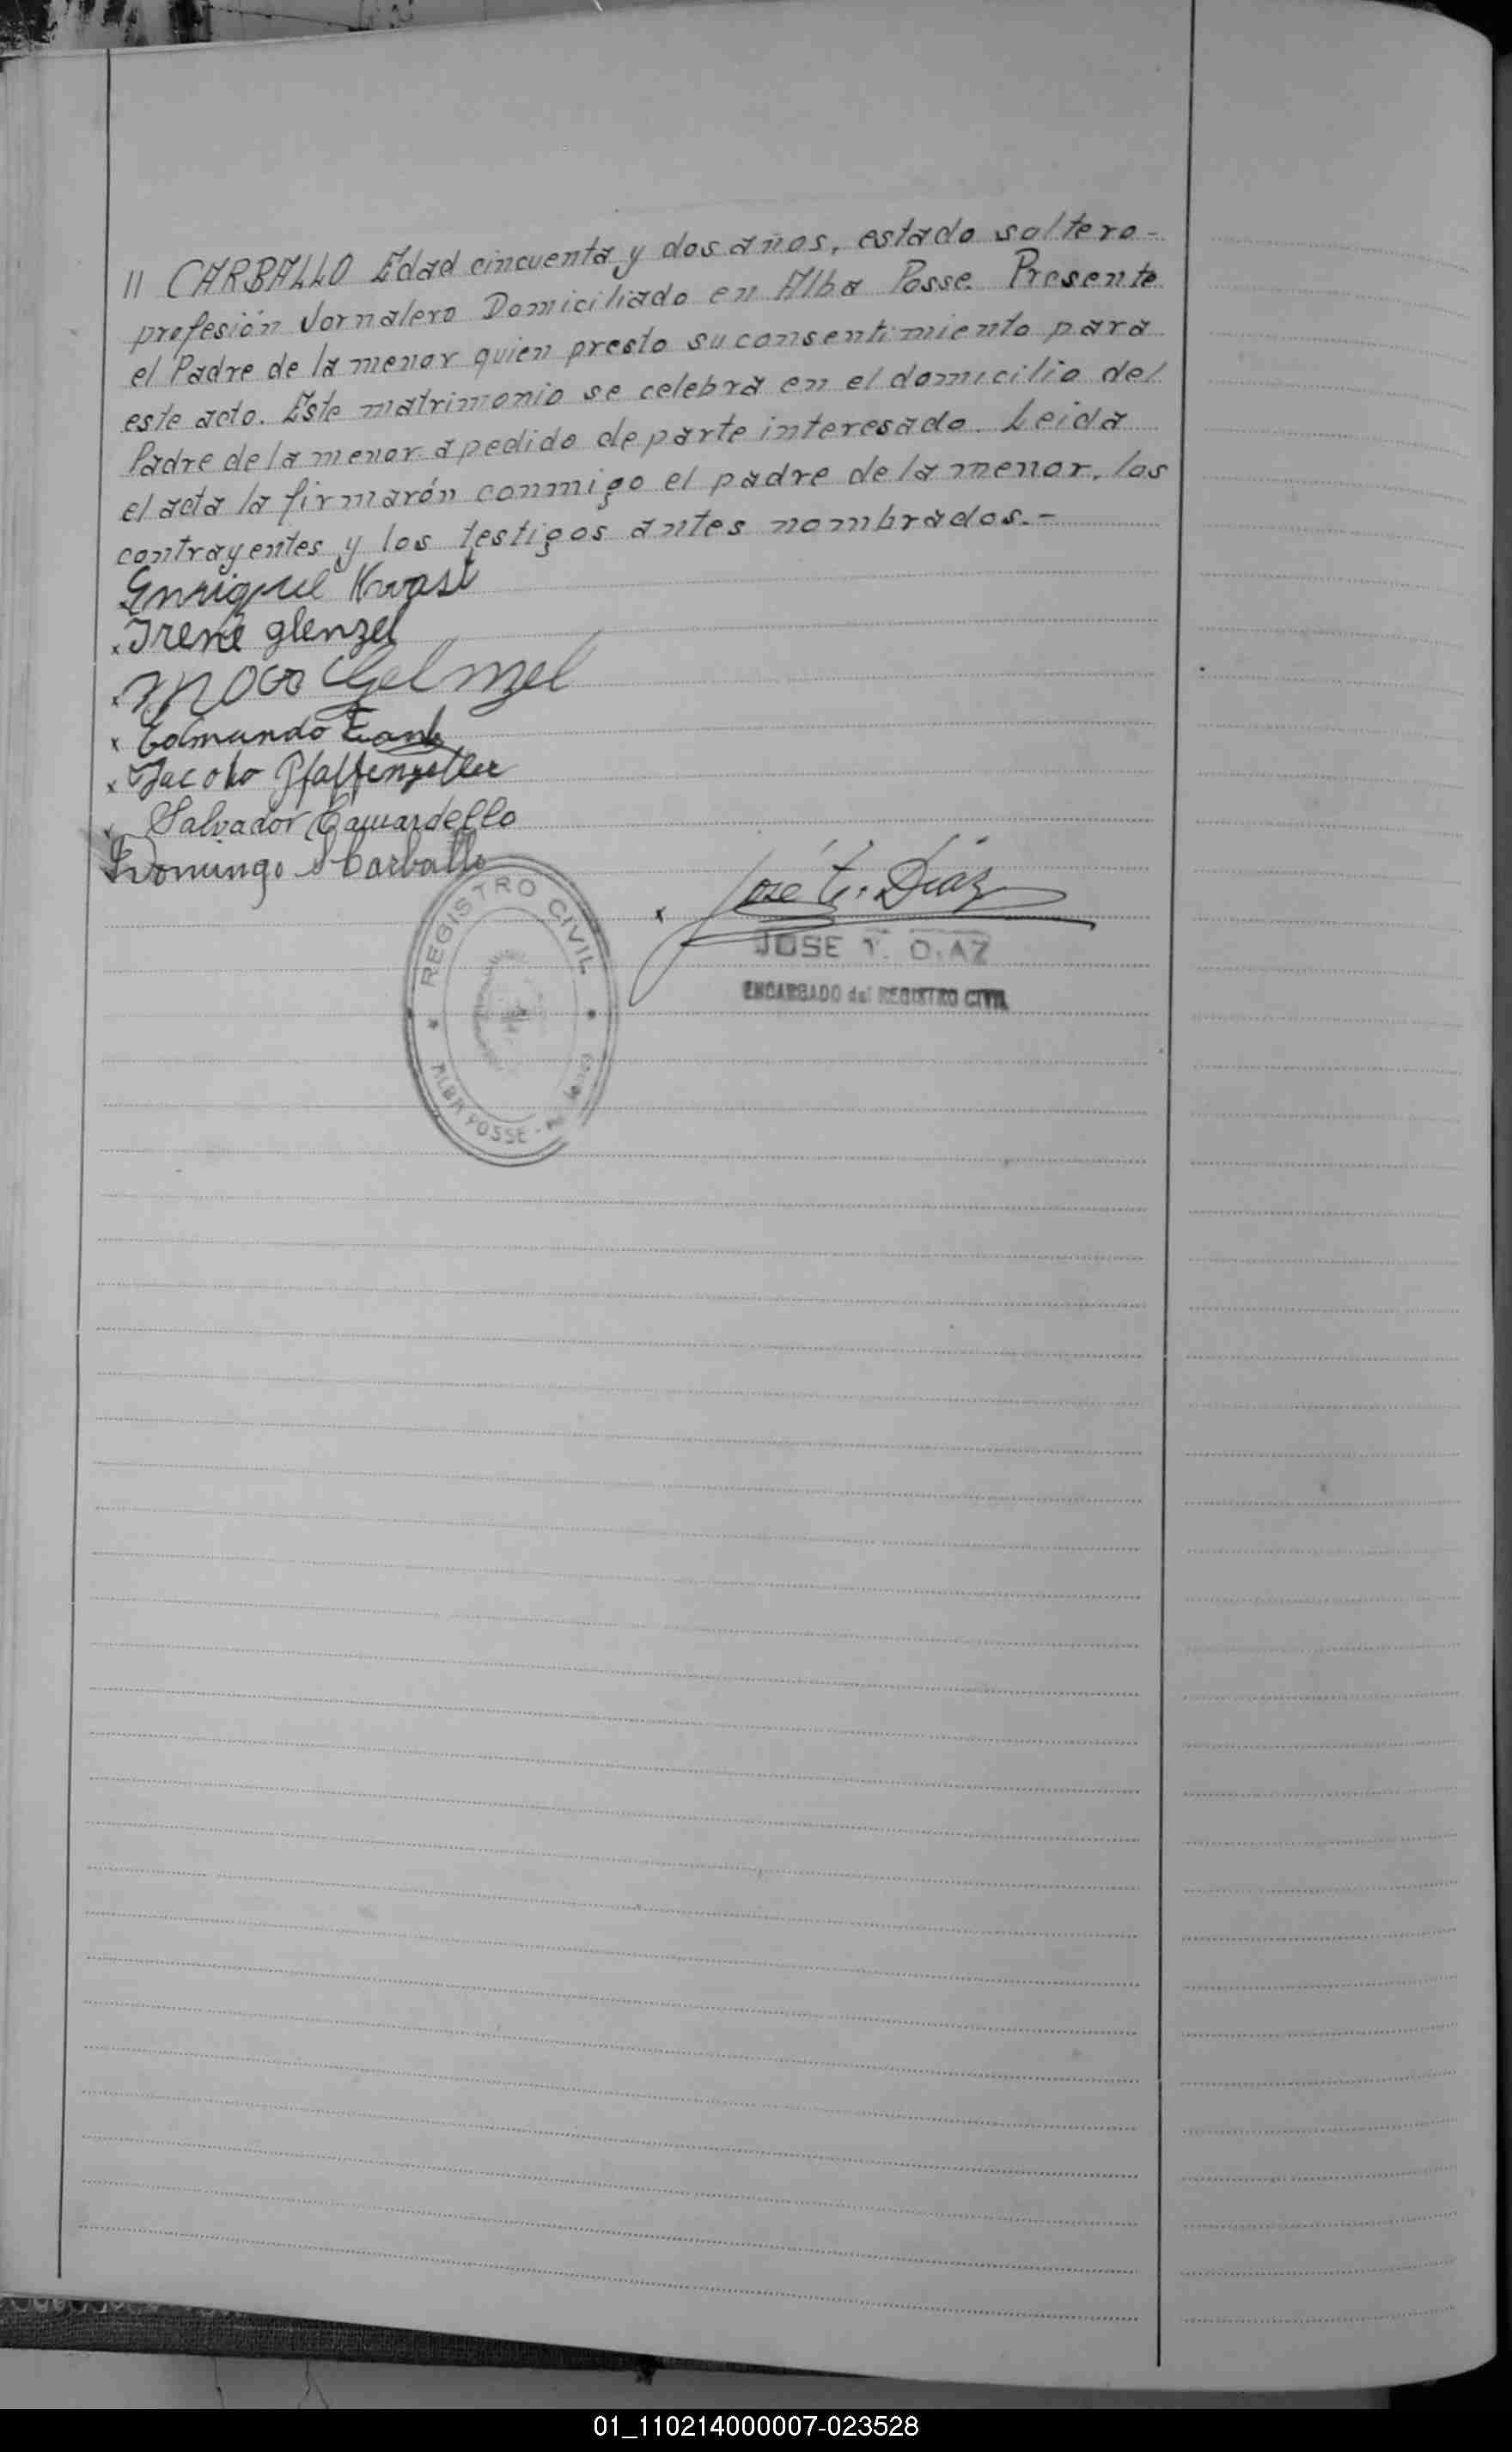 11 CARBALLO Edad cincuenta y dos años, estado soltero-
profesión Jornalero Domiciliado en Alba Posse. Presente
el Padre de la menor quien presto su consentimiento para
este acto. Este matrimonio se celebra en el domicilio del
Padre de la menor a pedido de parte interesado. Leida
el acta la firmarón conmigo el padre de la menor, los
contrayentes y los testigos antes nombrados.-
Enrique Kwast
x Irene glenzel
x
x Edmundo
x Jacobo Pfaffenzeller
x Salvador Camardello
Domingo Carballo
x José T. Díaz
JOSE T. DIAZ
ENCARGADO del REGISTRO CIVIL
REGISTRO CIVIL
ALBA POSSE -
01_110214000007-023528